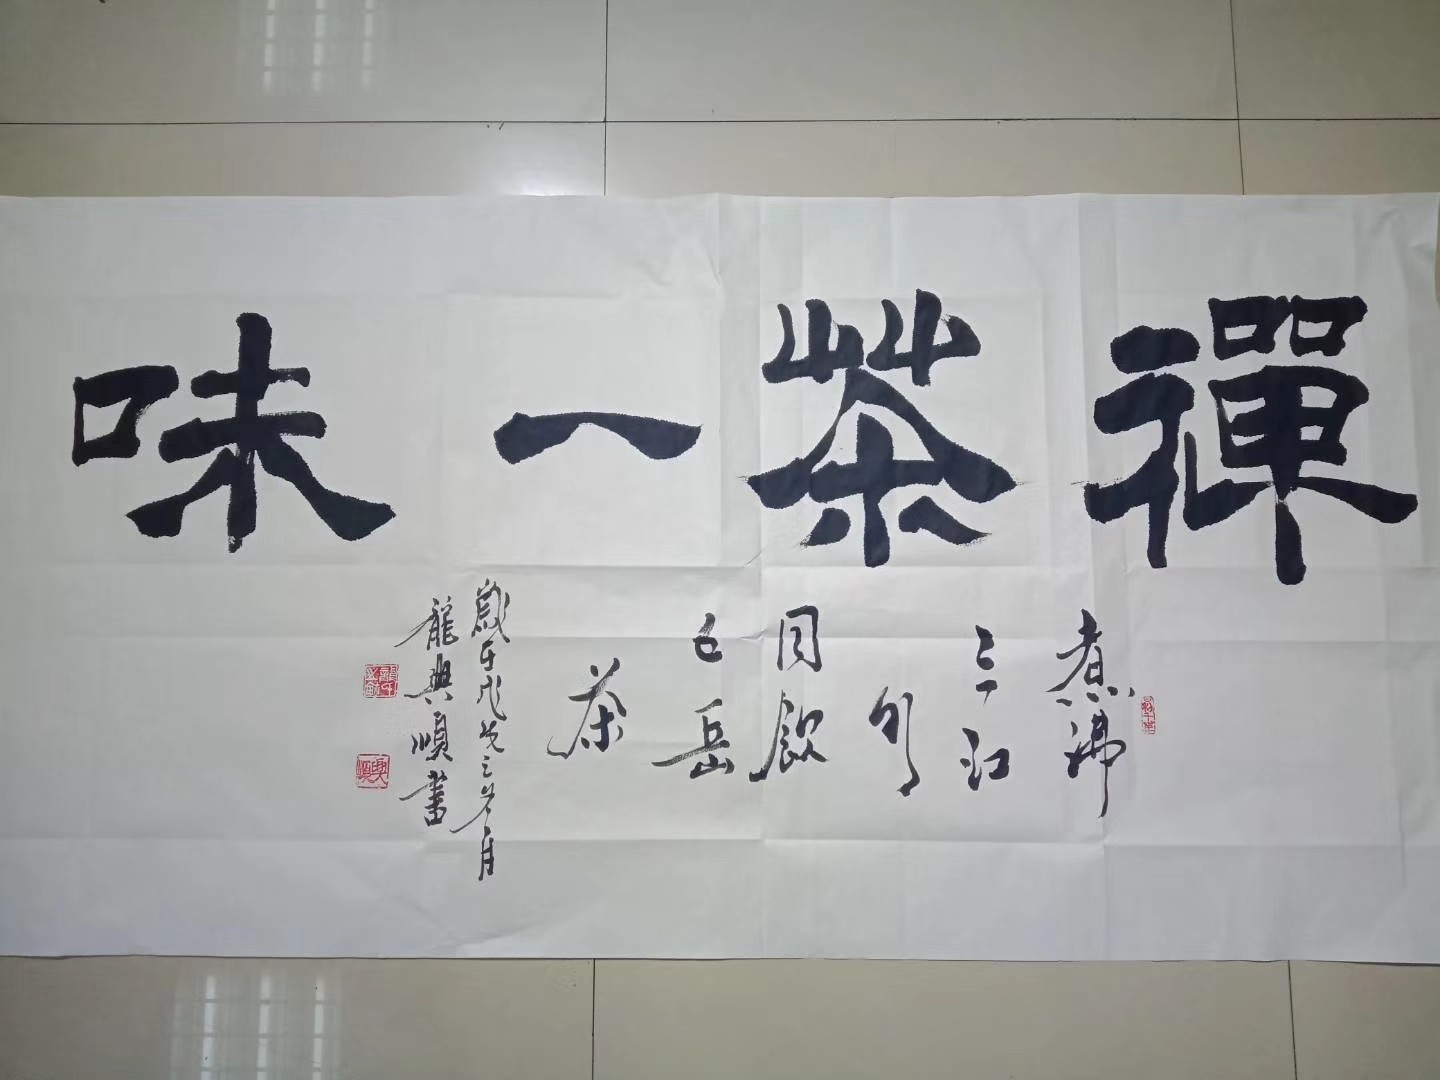 禪茶一味
煮沸
三江
水
同飲
五岳
茶
歲在戊戌之冬月
龍興順書